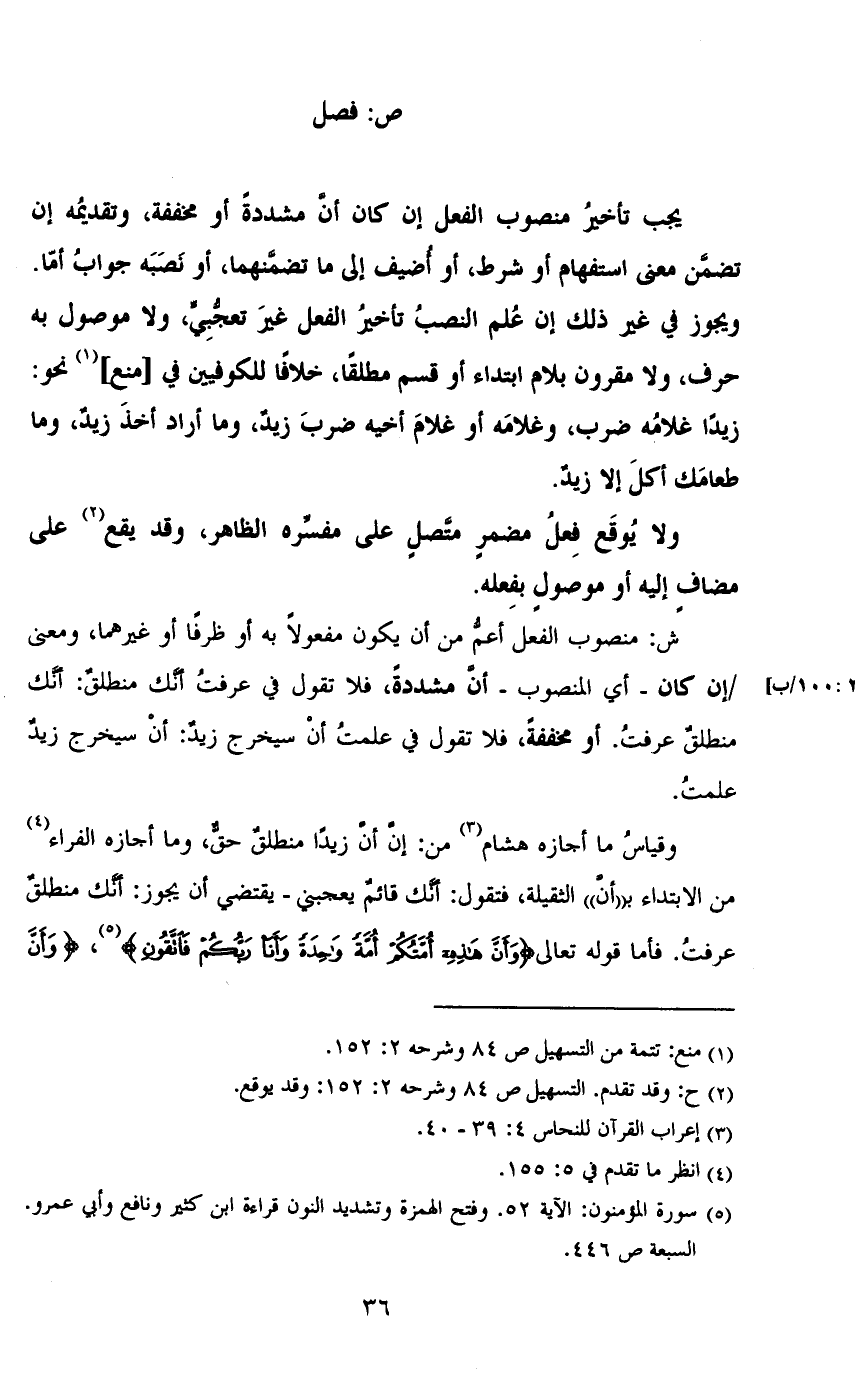 ص: فصل
يجب تأخيرُ منصوب الفعل إن كان أنَّ مشددةً أو مخففة، وتقديمُه إن
تضمَّن معنى استفهام أو شرط، أو أُضيف إلى ما تضمَّنهما، أو نَصَبَه جوابُ أمّا.
ويجوز في غير ذلك إن عُلم النصبُ تأخيرُ الفعل غيرَ تعجُّبيٍّ، ولا موصول به
حرف، ولا مقرون بلام ابتداء أو قسم مطلقًا، خلافًا للكوفيين في [منع](١) نحو:
زيدًا غلامُه ضرب، وغلامَه أو غلامَ أخيه ضربَ زيدٌ، وما أراد أخذَ زيدٌ، وما
طعامَك أكلَ إلا زيدٌ.
ولا يُوقَع فِعلُ مضمرٍ متَّصلٍ على مفسِّره الظاهر، وقد يقع(٢) على
مضافٍ إليه أو موصولٍ بفِعله.
ش: منصوب الفعل أعمُّ من أن يكون مفعولاً به أو ظرفًا أو غيرهما، ومعنى
/إن كان - أي المنصوب - أنَّ مشددةً، فلا تقول في عرفتُ أنَّك منطلقٌ: أنَّك
٢: ١٠٠/ب]
منطلقٌ عرفتُ. أو مخففةً، فلا تقول في علمتُ أنْ سيخرج زيدٌ: أنْ سيخرج زيدٌ
علمتُ.
وقياسُ ما أجازه هشام(٣) من: إنَّ أنَّ زيدًا منطلقٌ حقٌّ، وما أجازه الفراء(٤)
من الابتداء بـ((أنَّ)) الثقيلة، فتقول: أنَّك قائمٌ يعجبني - يقتضي أن يجوز: أنَّك منطلقٌ
عرفتُ. فأما قوله تعالى ﴿وَأَنَّ هَٰذِهِۦٓ أُمَّتُكُمْ أُمَّةً وَٰحِدَةً وَأَنَا۠ رَبُّكُمْ فَٱتَّقُونِ﴾(٥)، ﴿وَأَنَّ
(١) منع: تتمة من التسهيل ص ٨٤ وشرحه ٢: ١٥٢.
(٢) ح: وقد تقدم. التسهيل ص ٨٤ وشرحه ٢: ١٥٢: وقد يوقع.
(٣) إعراب القرآن للنحاس ٤: ٣٩ - ٤٠.
(٤) انظر ما تقدم في ٥: ١٥٥.
(٥) سورة المؤمنون: الآية ٥٢. وفتح الهمزة وتشديد النون قراءة ابن كثير ونافع وأبي عمرو.
السبعة ص ٤٤٦.
٣٦